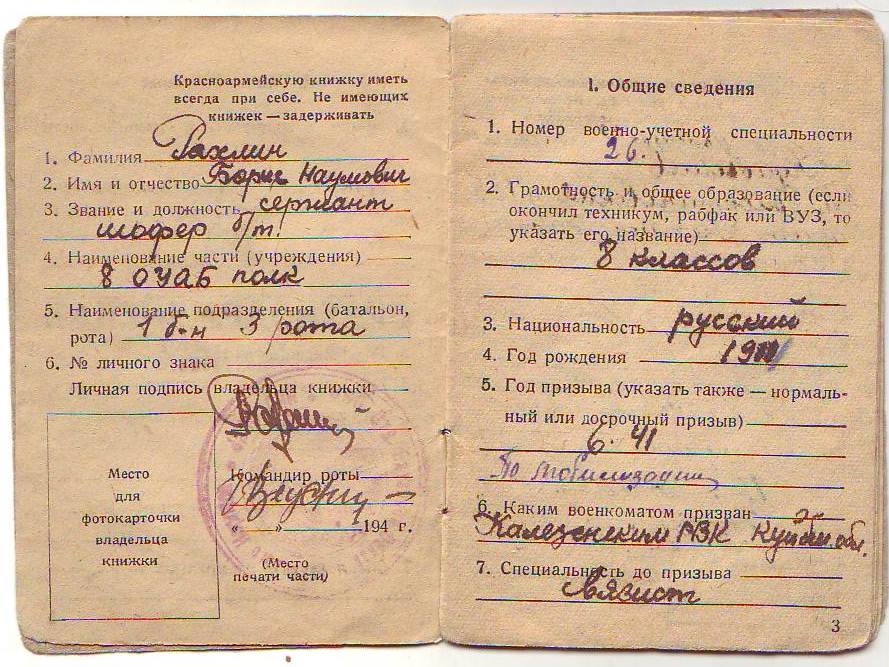 Красноармейскую книжку иметь
всегда при себе. Не имеющих
книжек — задерживать
1. Фамилия Рахлин
2. Имя и отчество Борис Наумович
3. Звание и должность сержант
шофер б/т.
4. Наименование части (учреждения)
8 ОУАБ полк
5. Наименование подразделения (батальон,
рота) 1 б-н 3 рота
6. № личного знака
Личная подпись владельца книжки
Командир роты
Место
для
фотокарточки
владельца
книжки
" " 194 г.
(Место
печати части)
I. Общие сведения
1. Номер военно-учетной специальности
26.
2. Грамотность и общее образование (если
окончил техникум, рабфак или ВУЗ, то
указать его название)
8 классов
3. Национальность русский
4. Год рождения
5. Год призыва (указать также — нормаль-
ный или досрочный призыв)
6. 41
По мобилизации
6. Каким военкоматом призван
РВК
7. Специальность до призыва
связист
3